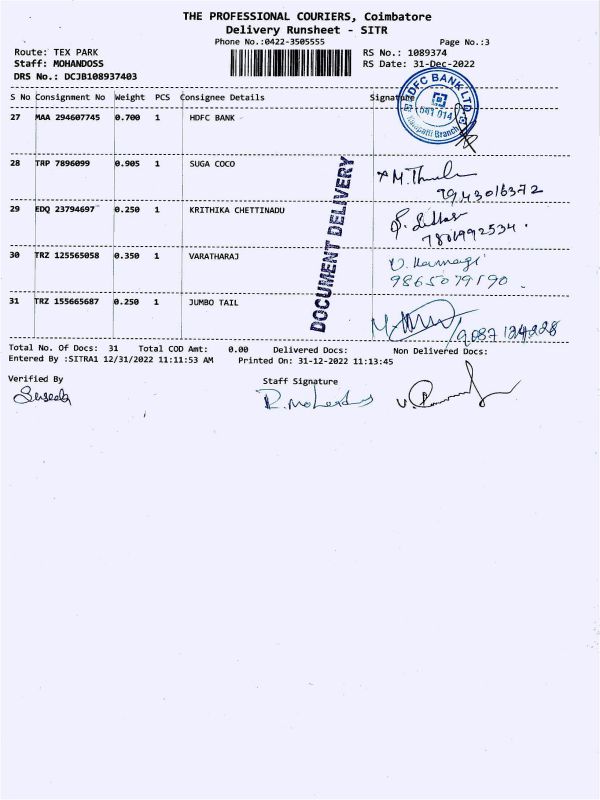 THE PROFESSIONAL COURIERS, Coimbatore
Delivery Runsheet - SITR
Phone No.:0422-3505555
Page No.:3
Route: TEX PARK
RS No.: 1089374
Staff: MOHANDOSS
RS Date: 31-Dec-2022
DRS No.: DCJB108937403
S No Consignment No Weight PCS Consignee Details Signature
HDFC BANK LTD
27 MAA 294607745 0.700 1 HDFC BANK
28 TRP 7896099 0.905 1 SUGA COCO
9943016372
29 EDQ 23794697 0.250 1 KRITHIKA CHETTINADU
7801992534.
30 TRZ 125565058 0.350 1 VARATHARAJ
9865079190
31 TRZ 155665687 0.250 1 JUMBO TAIL
DOCUMENT DELIVERY
Total No. Of Docs: 31 Total COD Amt: 0.00 Delivered Docs: Non Delivered Docs:
Entered By :SITRA1 12/31/2022 11:11:53 AM Printed On: 31-12-2022 11:13:45
Verified By
Staff Signature